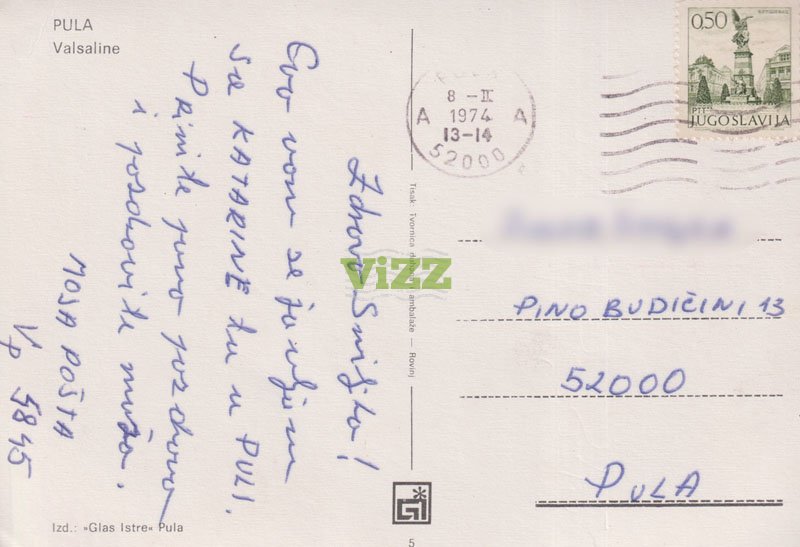 PULA
Valsaline
Zdravo Smiljka!
Evo vam se javljam
sa KATARINE tu u PULI.
Primite puno pozdrava
i pozdravite muža.
MOJA POŠTA
Vp 5845
Izd.: »Glas Istre« Pula
Tisak: Tvornica ambalaže — Rovinj
5
PULA
8 -II
A 1974 A
13-14
52000
0,50
JUGOSLAVIJA
PINO BUDIČINI 13
52000
PULA
ViZZ